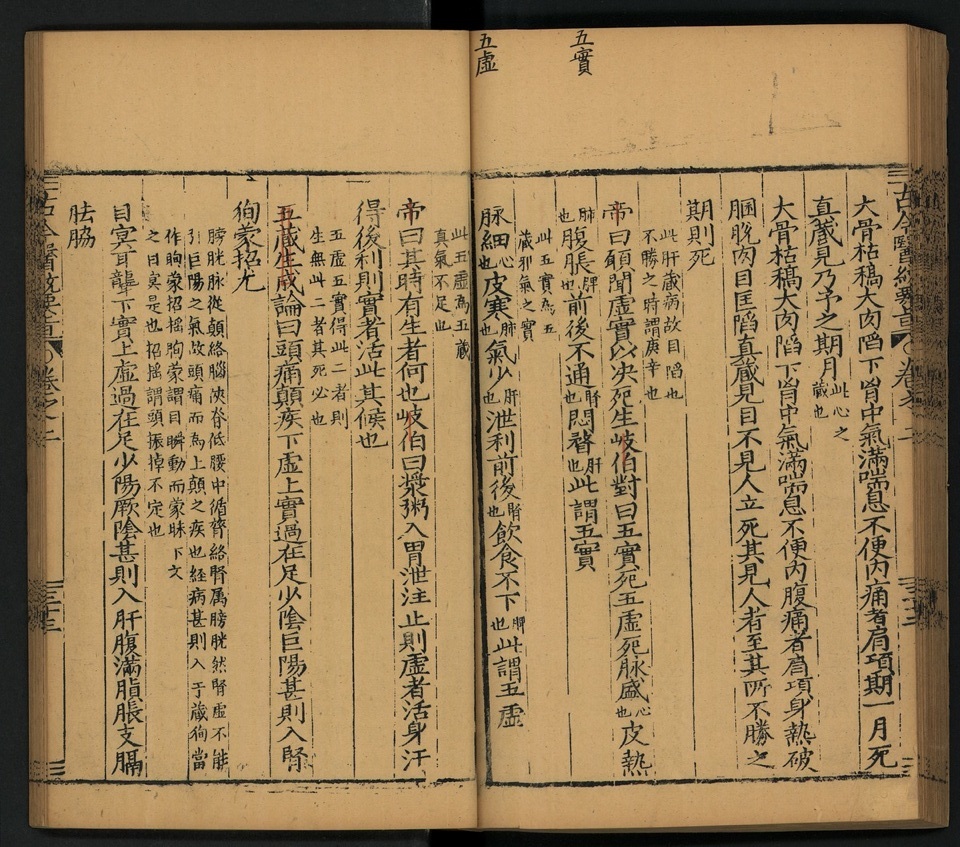 五實
五虛
古今醫統要旨 卷之二 三十二
大骨枯稿大肉陷下肩中氣滿喘息不便內痛者肩項期一月死
真藏見乃予之期月此心之藏也
大骨枯稿大肉陷下肩中氣滿喘息不便內腹痛者肩項身熱破
䐃脫肉目匡陷真藏見目不見人立死其見人者至其所不勝之
期則死
此肝藏病故目陷也
不勝之時謂庚辛也
帝曰願聞虛實以决死生岐伯對曰五實死五虛死脉盛心也皮熱
肺也腹脹脾也前後不通腎也悶瞀肝也此謂五實
此五實為五
藏邪氣之實
脉細心也皮寒肺也氣少肝也泄利前後腎也飲食不下脾也此謂五虛
此五虛為五藏
真氣不足也
帝曰其時有生者何也岐伯曰漿粥入胃泄注止則虛者活身汗
得後利則實者活此其候也
五虛五實得此二者則
生無此二者其死必也
五藏生成論曰頭痛顛疾下虛上實過在足少陰巨陽甚則入腎
徇蒙招尤
膀胱脉從顛絡腦俠脊低腰中循膂絡腎属膀胱然腎虛不能
引巨陽之氣故頭痛而為上顛之疾也経病甚則入于藏徇當
作眴蒙招搖眴蒙謂目瞬動而蒙昧下文
之目冥是也招搖謂頭振掉不定也
目冥耳聾下實上虛過在足少陽厥陰甚則入肝腹滿䐜脹支膈
胠脇
卷之二 三十三